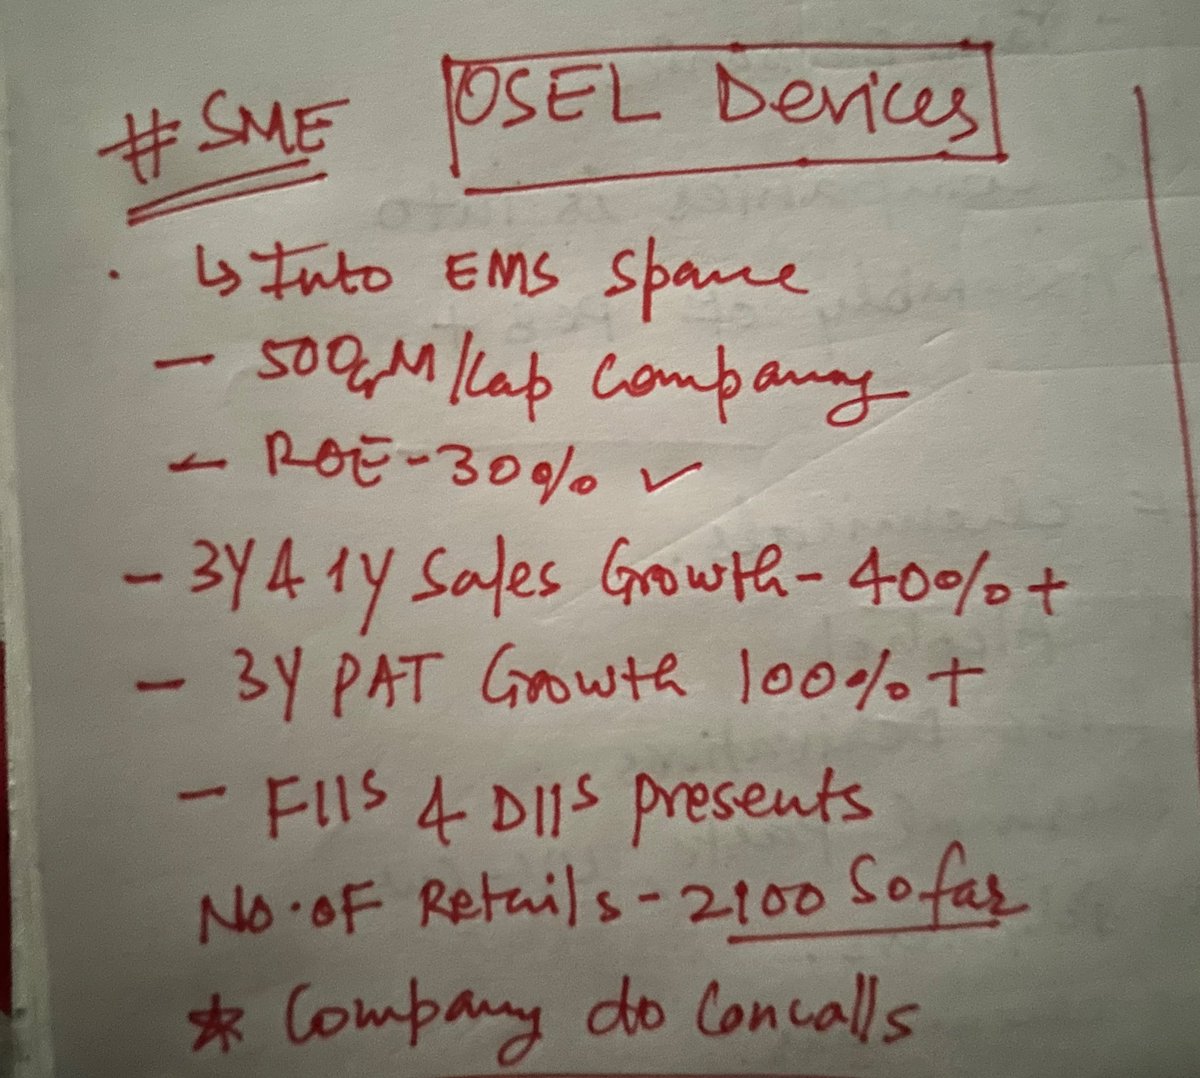 #SME OSEL Devices
↳ Into EMS Space
- 500Cr M/Cap Company
- ROE - 30% ✓
- 3Y & 1Y Sales Growth - 40% +
- 3Y PAT Growth 100% +
- FIIS & DIIS presents
No. of Retails - 2100 So far
* Company do Concalls